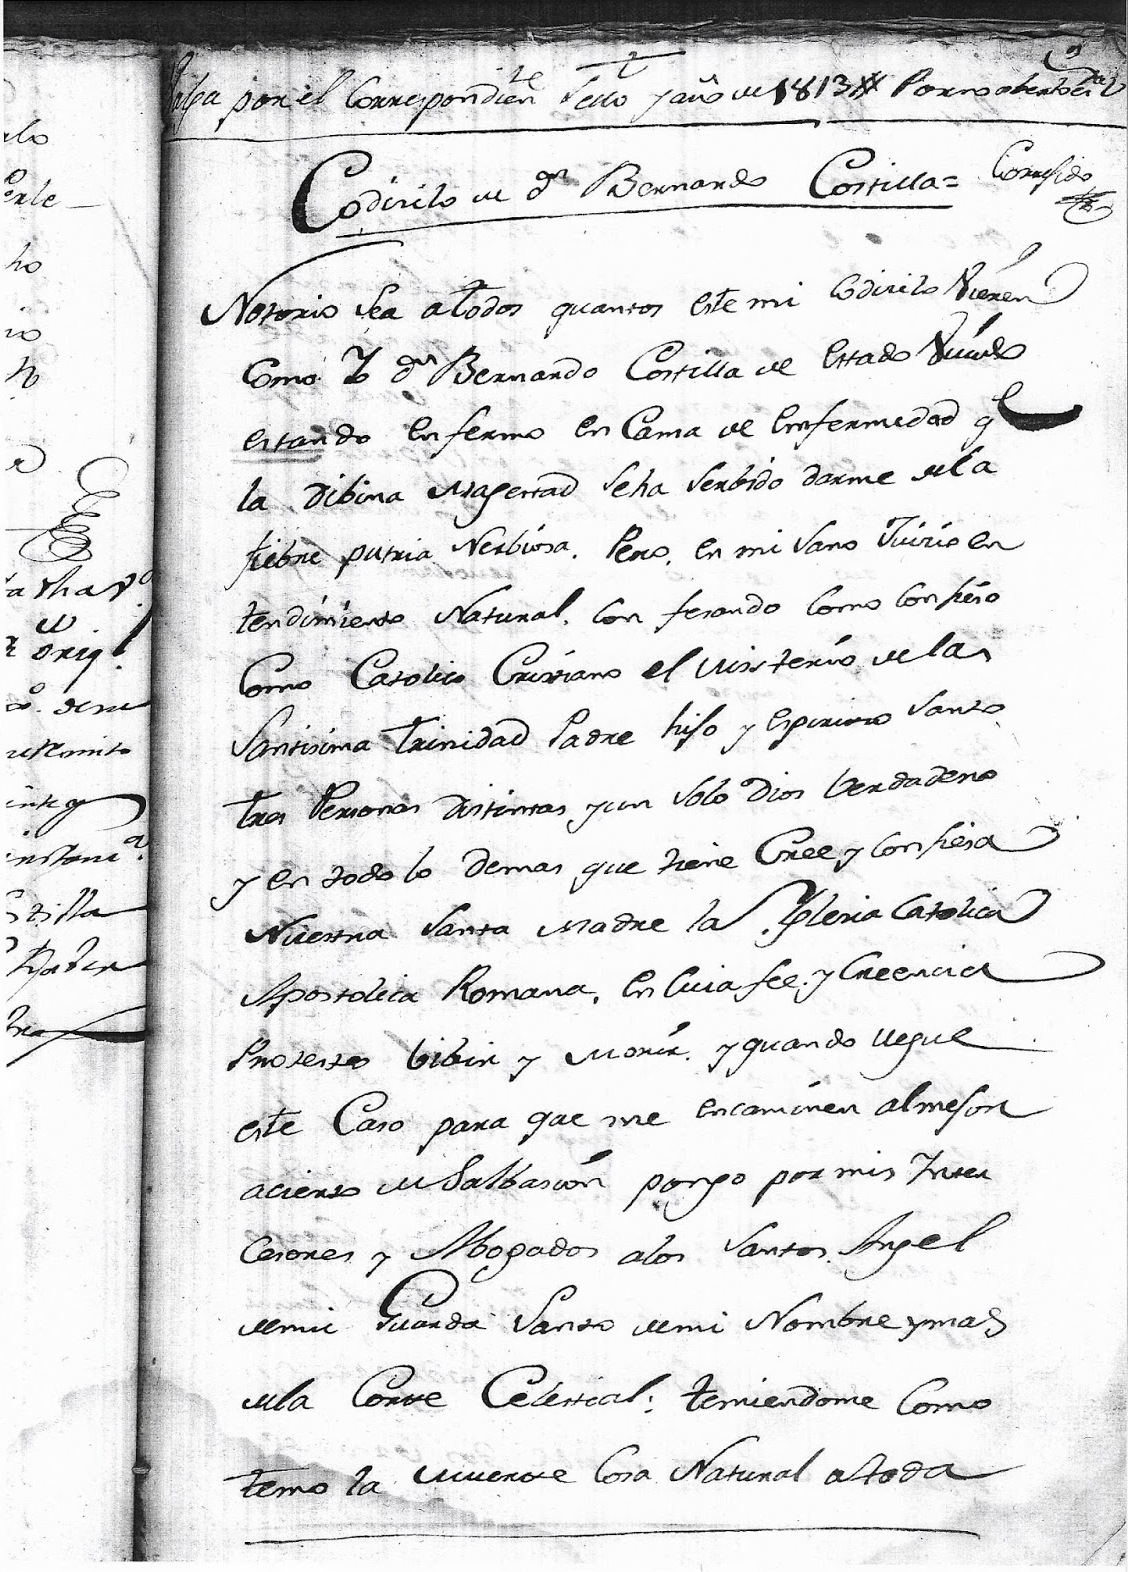 Valga por el Correspondien.te Sello y año de 1813
Codicilo de Dn Bernardo Costilla= Corregido
Notorio sea a todos quantos este mi Codicilo Vieren
Como Yo Dn Bernardo Costilla de Estado Viudo
estando enfermo en Cama de enfermedad q.e
la Dibina Magestad se ha serbido darme de la
fiebre putria Nerbiosa. Pero, en mi sano Juicio en
tendimiento Natural. Con fesando Como Confieso
Como Catolico Cristiano el Misterio de la
Santisima Trinidad Padre hijo y espiritu Santo
tres Personas distintas y un solo Dios berdadero
y en todo lo demas que tiene Cree y Confiesa
Nuestra Santa Madre la Yglesia Catolica
Apostolica Romana, en Cuia fee y Creencia
Protesto bibir y Morir. y quando llegue
este Caso para que me encaminen al mejor
acierto de Salbasion pongo por mis Inter
cesores y Abogados a los Santos Angel
de mi Guarda Santo de mi Nombre y mas
de la Corte Celestial: temiendome Como
temo la Muerte Cosa Natural a toda
rlo
ho
io
origl.
stilla